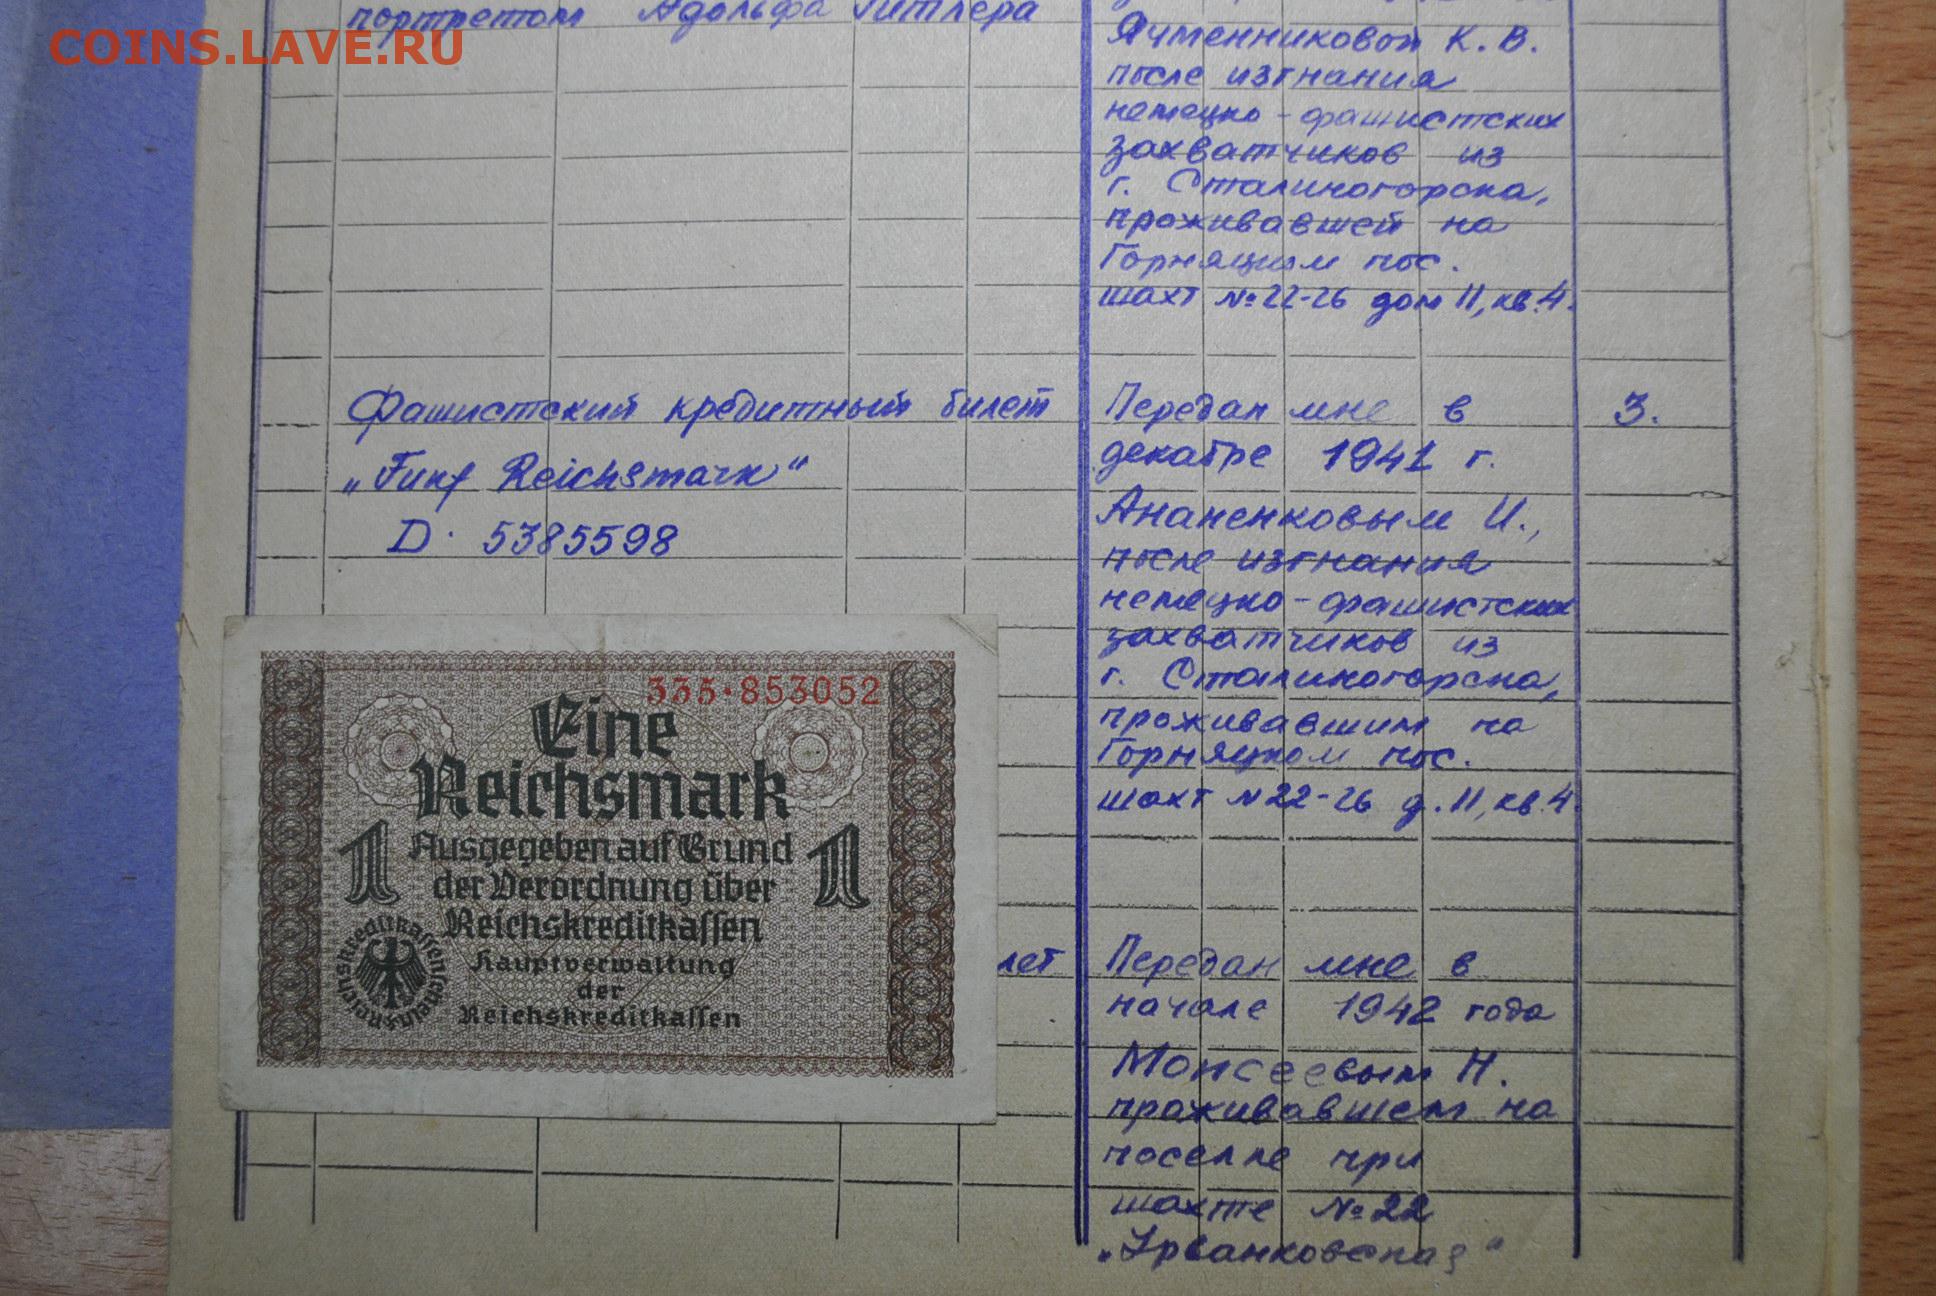 COINS.LAVE.RU
портретом Адольфа Гитлера
Ячменниковой К. В.
после изгнания
немецко-фашистских
захватчиков из
г. Сталиногорска,
проживавшей на
Горняцком пос.
шахт №22-26 дом 11, кв. 4.
Фашистский кредитный билет
„Funf Reichsmark“
D· 5385598
Передан мне в
декабре 1941 г.
Ананенковым И.,
после изгнания
немецко-фашистских
захватчиков из
г. Сталиногорска,
проживавшим на
Горняцком пос.
шахт №22-26 д. 11, кв. 4
3.
335·853052
Eine
Reichsmark
1 1
Ausgegeben auf Grund
der Verordnung über
Reichskreditkassen
Hauptverwaltung
der
Reichskreditkassen
Reichskreditkassenscheins
лет
Передан мне в
начале 1942 года
Моисеевым Н.
проживавшем на
поселке при
шахте №22
„Урванковская“